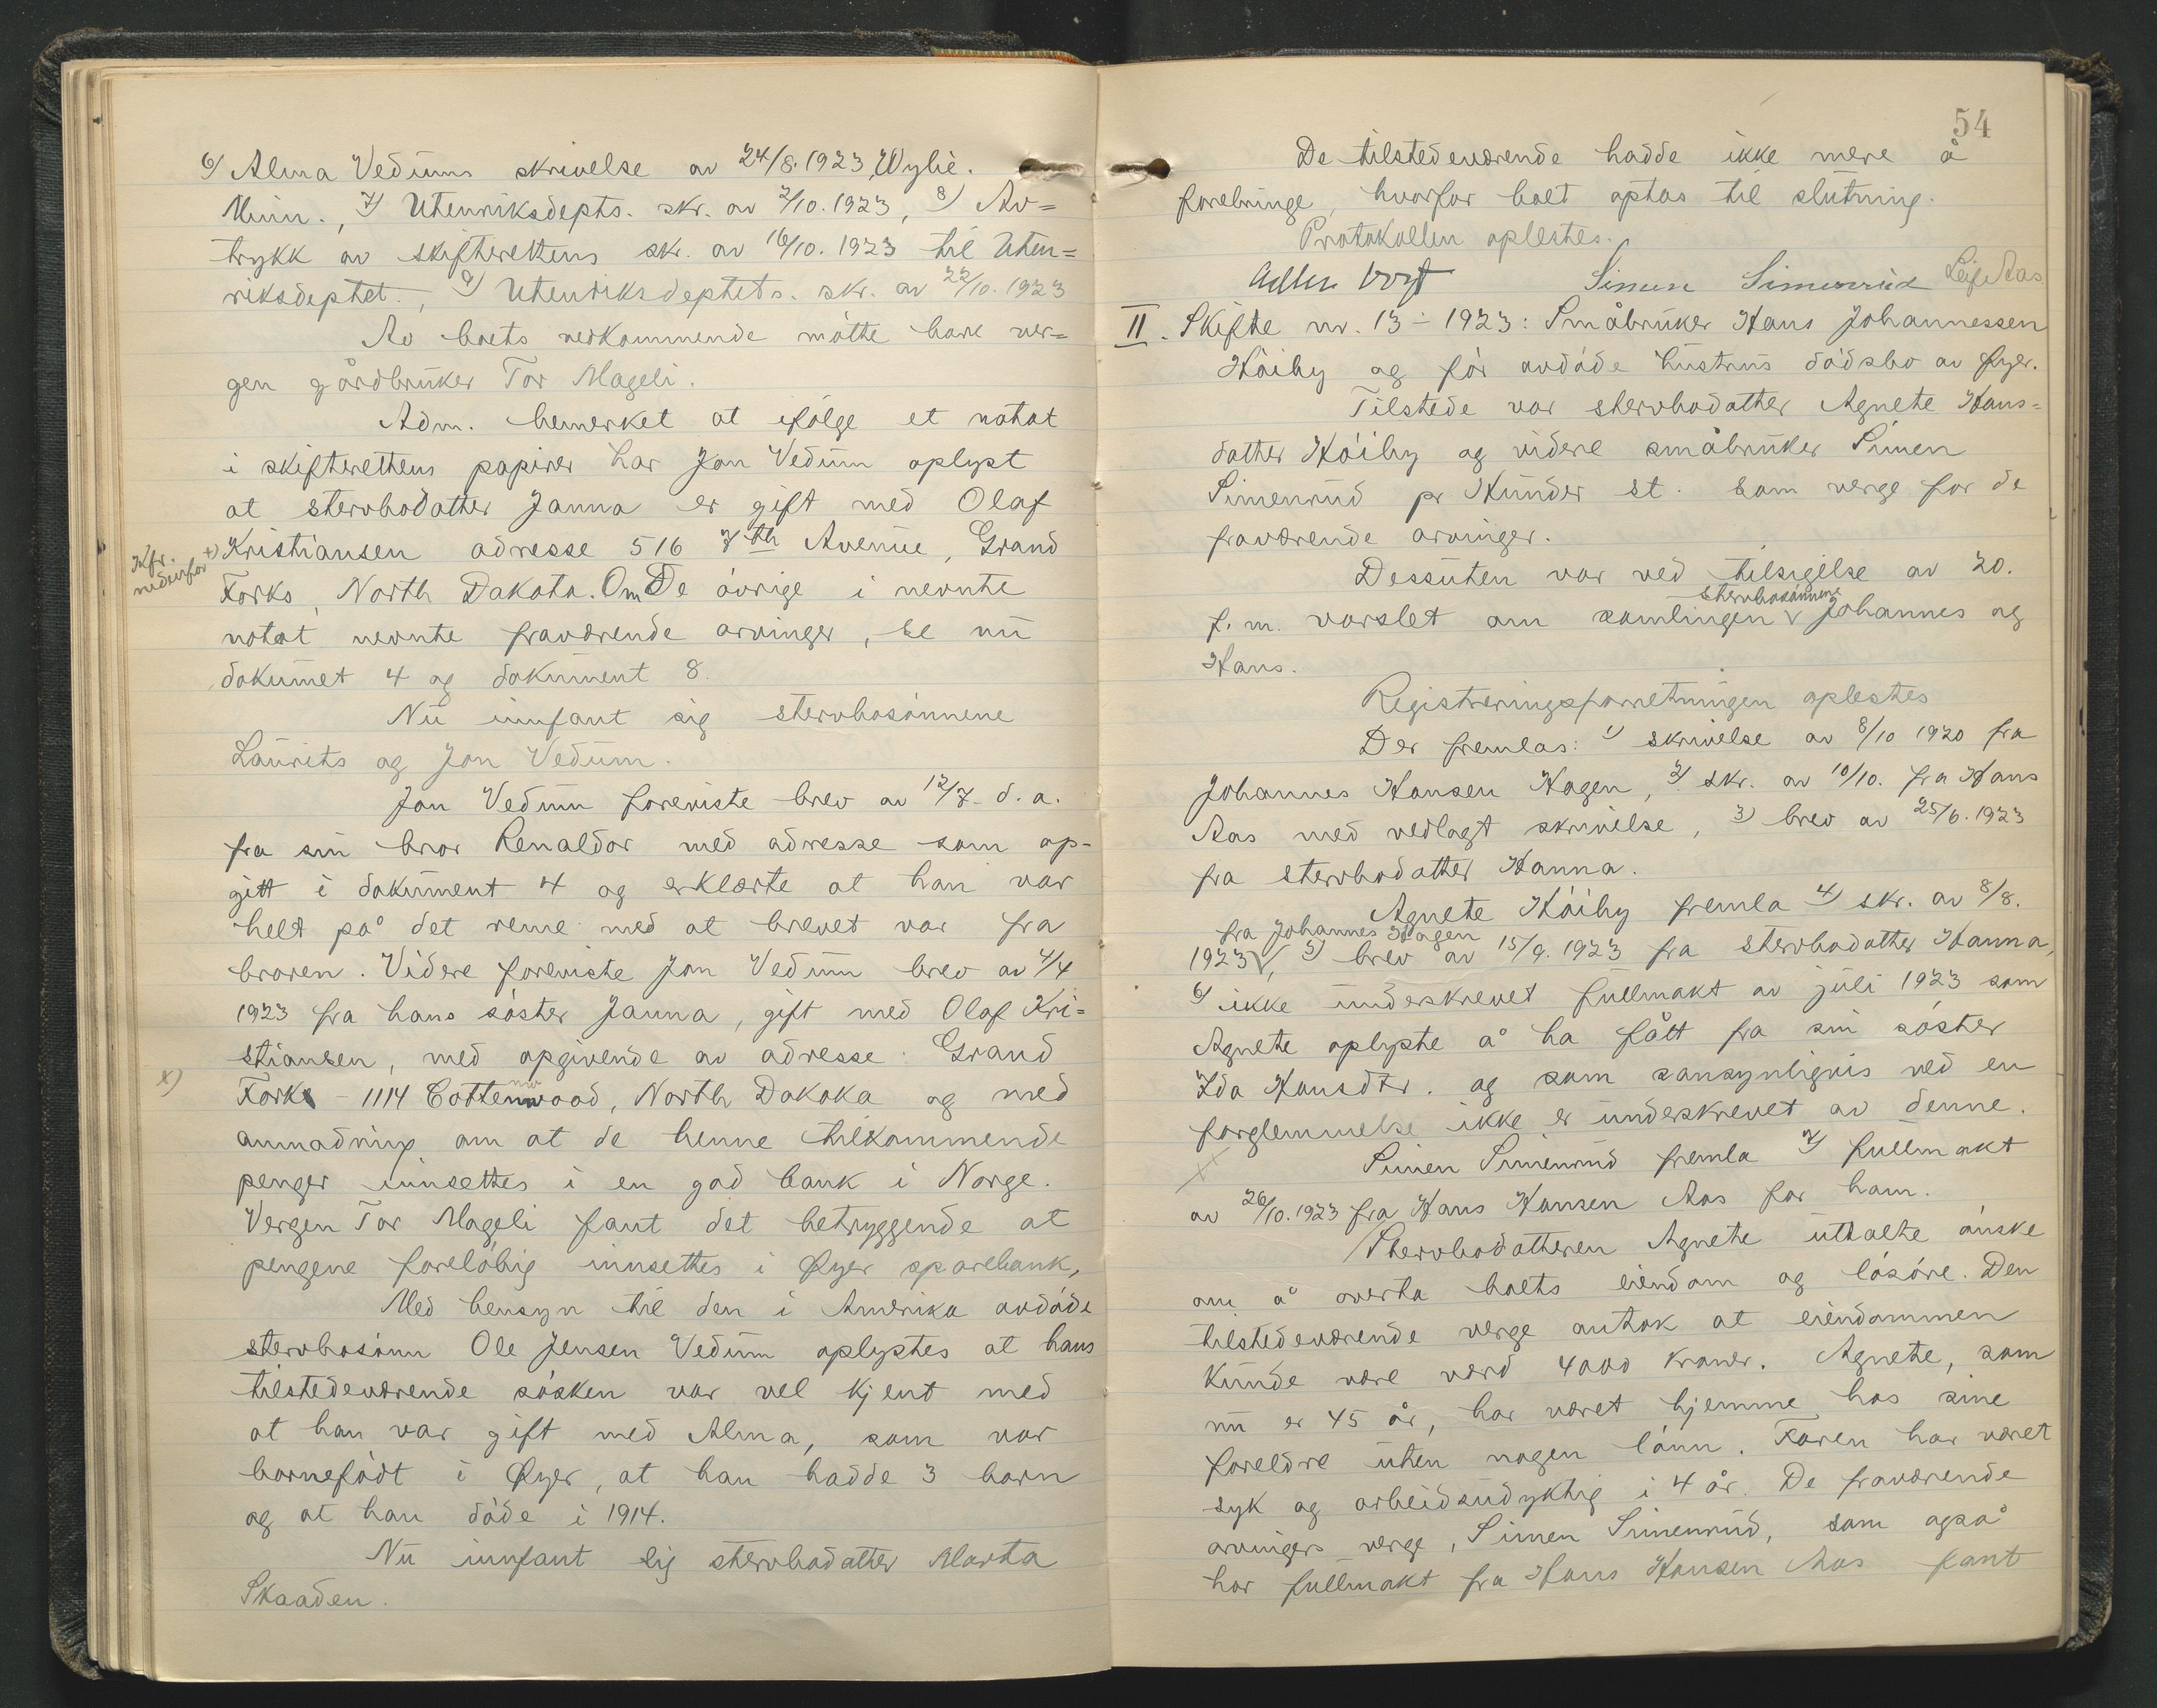 6) Alma Vedums skrivelse av 24/8. 1923, Wylie.
Minn., 7) Utenriksdepts. skr. av 2/10. 1923, 8) Av=
trykk av skifterettens skr. av 16/10. 1923 til Uten=
riksdeptet., 9) Utenriksdeptets. skr. av 22/10. 1923
Av boets vedkommende møtte bare ver=
gen gårdbruker Tor Mageli.
Adm. bemerket at ifølge et notat
i skifterettens papirer har Jon Vedum oplyst
at stervbodatter Janna er gift med Olaf
Kfr. nedenfor +) Kristiansen adresse 516 7th Avenue, Grand
Forks, North Dakota. Om De øvrige i nevnte
notat nevnte fraværende arvinger, se nu
dokumet 4 og dokument 8.
Nu innfant sig stervbosønnene
Laurits og Jon Vedum.
Jon Vedum foreviste brev av 12/7. d.a.
fra sin bror Renaldor med adresse som op-
gitt i dokument 4 og erklærte at han var
helt på det rene med at brevet var fra
broren. Videre foreviste Jon Vedum brev av 4/4
1923 fra hans søster Janna, gift med Olaf Kri=
stiansen, med opgivende av adresse: Grand
x) Forks - 1114 Cottenwood, North Dakoka og med
anmodning om at de henne tilkommende
penger innsettes i en god bank i Norge.
Vergen Tor Mageli fant det betryggende at
pengene foreløbig innsettes i Øyer sparebank,
Med hensyn til den i Amerika avdøde
stervbosønn Ole Jensen Vedum oplystes at hans
tilstedeværende søsken var vel kjent med
at han var gift med Alma, som var
barnefødt i Øyer, at han hadde 3 barn
og at han døde i 1914.
Nu innfant sig stervbodatter Marta
Skaaden.
54
De tilstedeværende hadde ikke mere å
forebringe, hvorfor boet optas til slutning.
Protokollen oplestes.
Adler Vogt Simen Simenrud Leif Aas
II. Skifte nr. 13 - 1923: Småbruker Hans Johannessen
Høiby og før avdøde hustrus dødsbo av Øyer.
Tilstede var stervbodatter Agnete Hans=
datter Høiby og videre småbruker Simen
Simenrud pr Hunder st. som verge for de
fraværende arvinger.
Dessuten var ved tilsigelse av 20.
stervbosønnene
f.m. varslet om samlingen v Johannes og
Hans.
Registreringsforretningen oplestes
Der fremlas: 1) skrivelse av 8/10 1920 fra
Johannes Hansen Hagen, 2) skr. av 10/10. fra Hans
Aas med vedlagt skrivelse, 3) brev av 25/6. 1923
fra stervbodatter Hanna.
Agnete Høiby fremla 4) skr. av 8/8.
fra Johannes Hagen
1923 v, 5) brev av 15/9. 1923 fra stervbodatter Hanna,
6) ikke underskrevet fullmakt av juli 1923 som
Agnete oplyste å ha fått fra sin søster
Ida Hansdtr. og som sansynligvis ved en
forglemmelse ikke er underskrevet av denne.
Simen Simenrud fremla 7) fullmakt
av 26/10. 1923 fra Hans Hansen Aas for ham.
Stervbodatteren Agnete uttalte ønske
om å overta boets eiendom og løsøre. Den
tilstedeværende verge antok at eiendommen
kunde være værd 4000 kroner. Agnete, som
nu er 45 år, har været hjemme hos sine
foreldre uten nogen lønn. Faren har været
syk og arbeidsudyktig i 4 år. De fraværende
arvingers verge, Simen Simenrud, som også
har fullmakt fra Hans Hansen Aas fant